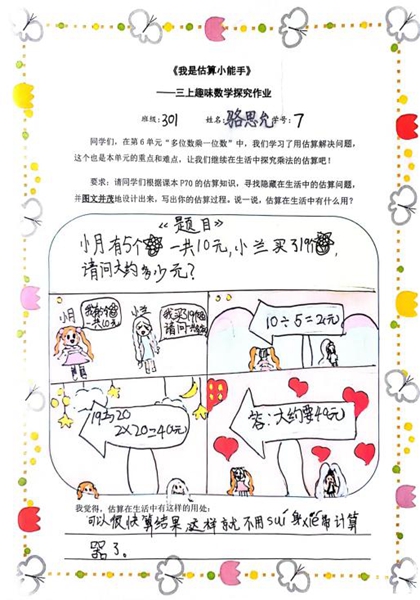 《我是估算小能手》
——三上趣味数学探究作业
班级:301 姓名:骆思允 学号:7
同学们,在第6单元“多位数乘一位数”中,我们学习了用估算解决问题,
这个也是本单元的重点和难点,让我们继续在生活中探究乘法的估算吧!
要求:请同学们根据课本P70的估算知识,寻找隐藏在生活中的估算问题,
并图文并茂地设计出来,写出你的估算过程。说一说,估算在生活中有什么用?
《题目》
小月有5个 一共10元,小兰买了19个,
请问大约多少元?
小月 小兰
一共10元
我买19个
请问
10÷5=2(元)
19≈20
2×20=40(元)
答:大约要40元
我觉得,估算在生活中有这样的用处:
可以很快算结果 这样就不用suí 身xié带计算
器了。